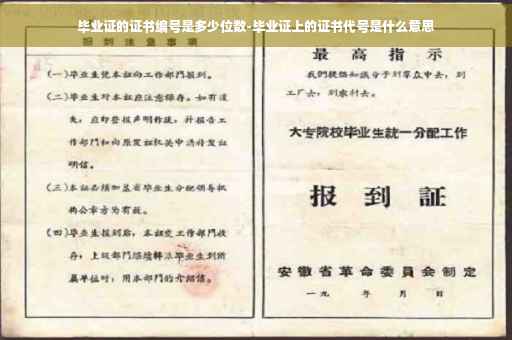 毕业证的证书编号是多少位数-毕业证上的证书代号是什么意思
报到注意事项
(一)毕业生凭本证向工作部门报到。
(二)毕业生对本证应注意保存。如有遗
失,应即登报声明作废,并报告工
作部门和向原发证机关申请补发证
明信。
(三)本证必须加盖省毕业生分配领导机
构公章方为有效。
(四)毕业生报到后,本证交工作部门收
存;上级部门继续转派毕业生到所
属单位时,用本部门的介绍信。
最高指示
我们提倡知识分子到群众中去,到
工厂去,到农村去。
大专院校毕业生統一分配工作
报到証
安徽省革命委員会制定
一九 年 月 日